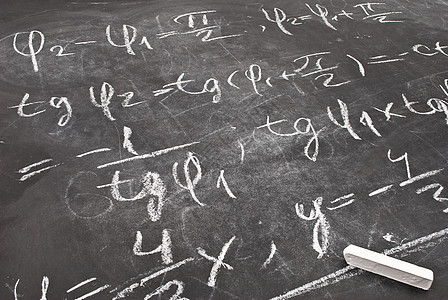 φ₂ - φ₁ = π/2 , φ₂ = φ₁ + π/2
tg φ₂ = tg(φ₁ + π/2) = -
= - 1/tg φ₁ , tg φ₁ × tg
y = - 4/
4 x ,